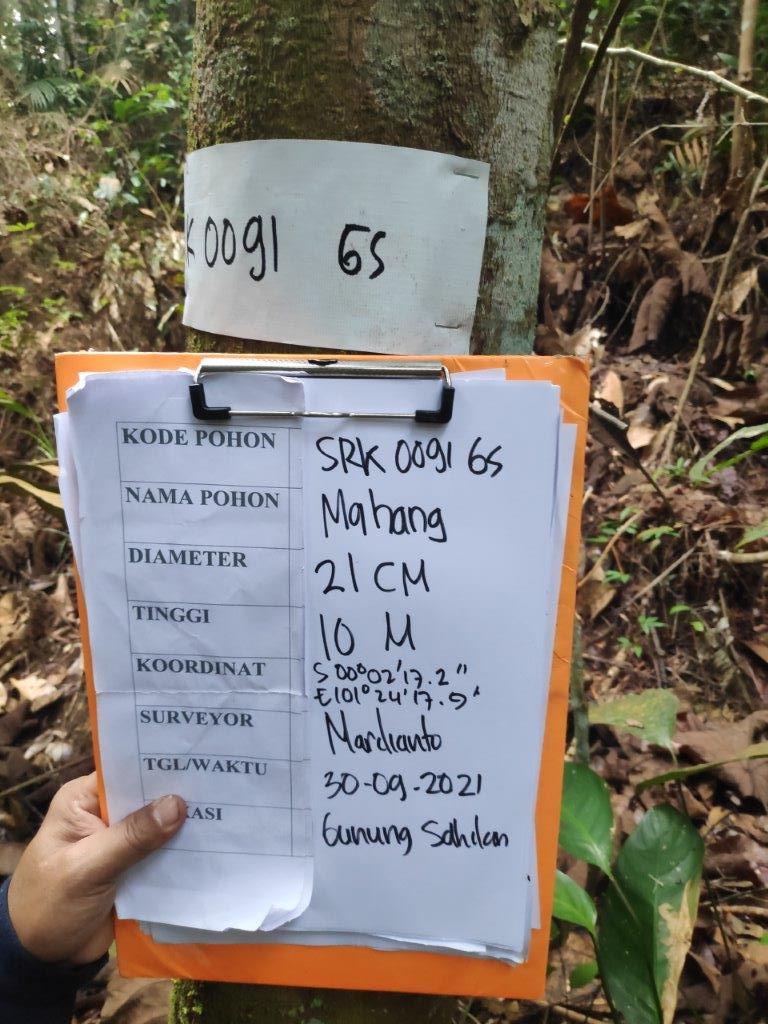 K 0091 GS
KODE POHON SRK 0091 GS
NAMA POHON Mahang
DIAMETER 21 CM
TINGGI 10 M
KOORDINAT S 00°02'17.2"
E 101°24'17.9"
SURVEYOR Mardianto
TGL/WAKTU 30-09-2021
KASI Gunung Sahilan